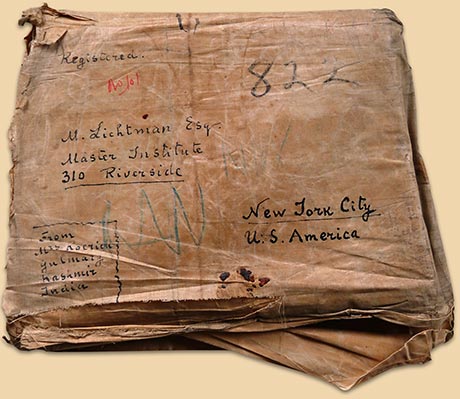 Registered.
No 101
822
M. Lichtman Esq.
Master Institute
310 Riverside
New York City
U.S. America
From
Mrs Roerich
Gulmarg
Kashmir
India